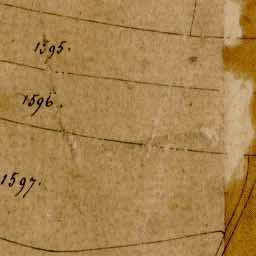 1595.
1596.
1597.